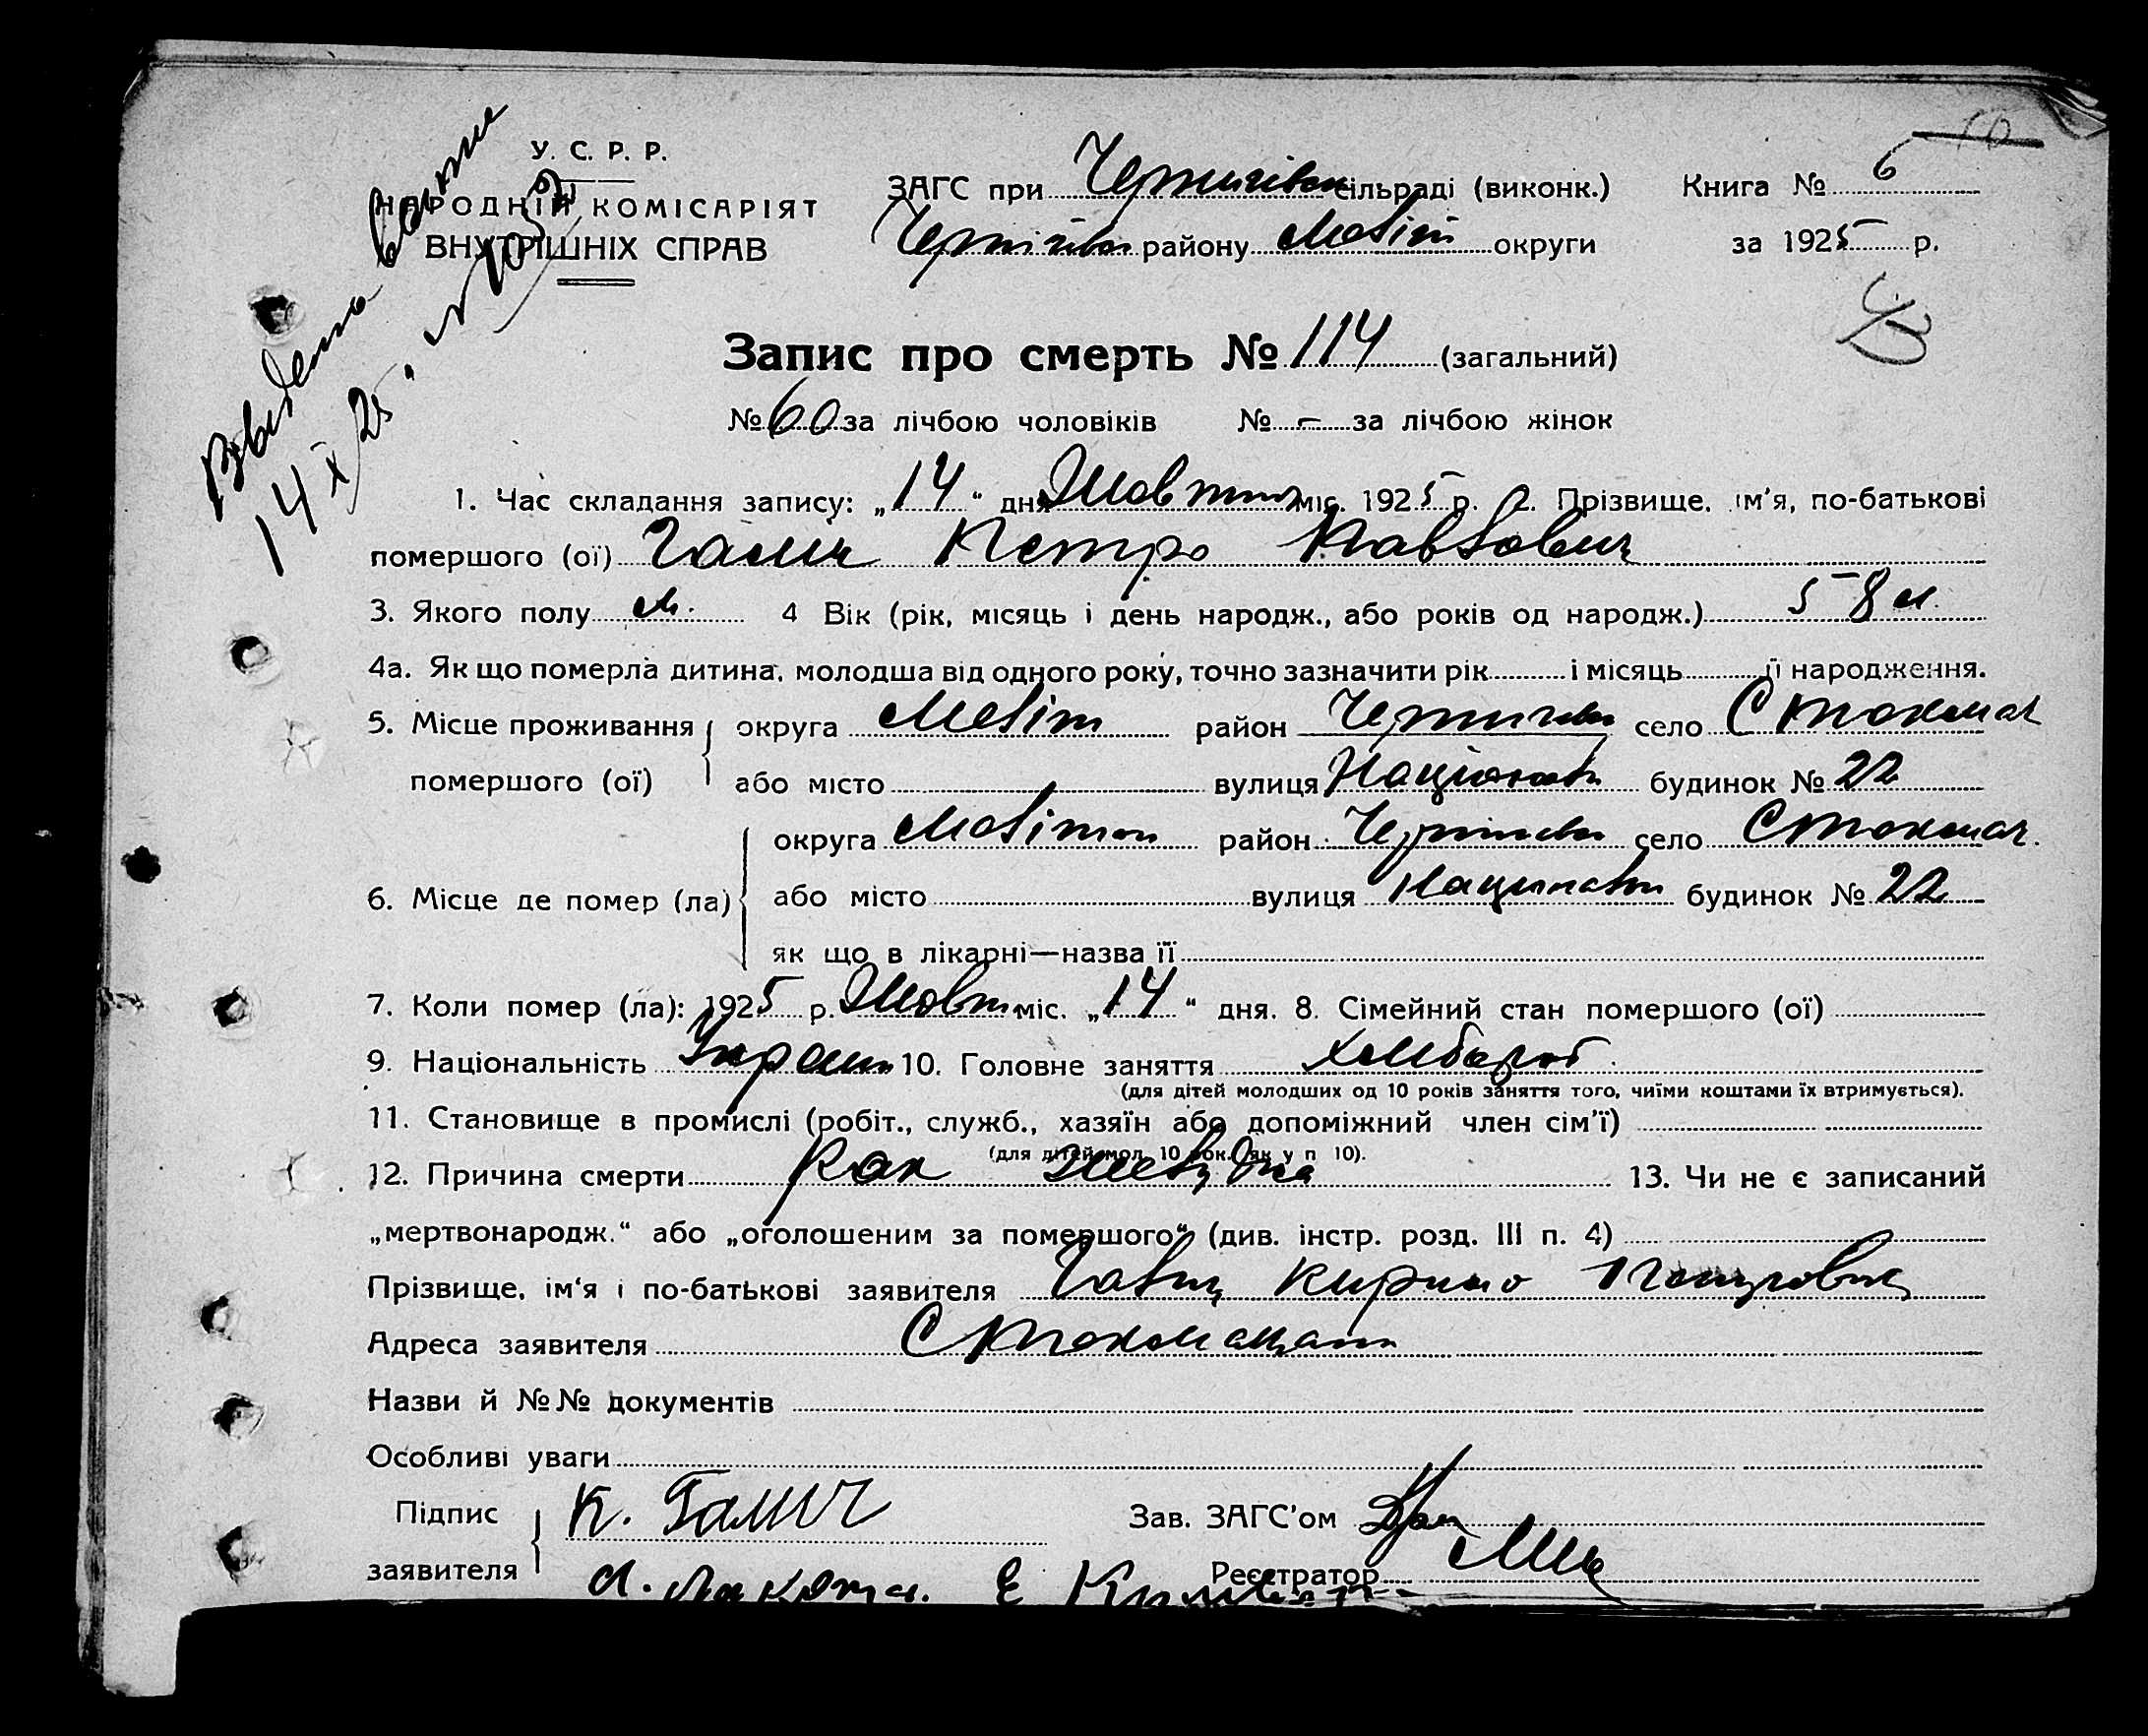 У. С. Р. Р.
НАРОДНІЙ КОМІСАРІЯТ
ВНУТРІШНІХ СПРАВ
14 X 25
ЗАГС при Чернигівск сільраді (виконк.) Книга № 6
районy Меліт округи за 1925 р.
Запис про смерть № 114 (загальний)
№ 60 за лічбою чоловіків № - за лічбою жінок
1. Час складання запису: „14“ дня Жовтня міс. 1925 р. 2. Прізвище, ім'я, по-батькові
помершого (ої) Галич Петро Павлович
3. Якого полу м. 4 Вік (рік, місяць і день народж., або років од народж.) 58 л.
4а. Як що померла дитина, молодша від одного року, точно зазначити рік і місяць її народження.
5. Місце проживання округа Меліт район село Стокмач
помершого (ої) або місто вулиця будинок № 22
округа район село Стокмач.
6. Місце де помер (ла) або місто вулиця будинок № 22
як що в лікарні—назва її
7. Коли помер (ла): 1925 р. Жовтн міс. „14“ дня. 8. Сімейний стан помершого (ої)
9. Національність Украин 10. Головне заняття хлібороб.
(для дітей молодших од 10 років заняття того, чиїми коштами їх втримується).
11. Становище в промислі (робіт., служб., хазяїн або допоміжний член сім'ї)
(для дітей мол. 10 рок. як у п 10).
12. Причина смерти Рак желудка 13. Чи не є записаний
„мертвонародж.“ або „оголошеним за помершого“ (див. інстр. розд. III п. 4)
Прізвище, ім'я і по-батькові заявителя Галич Кирило Петрович
Адреса заявителя
Назви й №№ документів
Особливі уваги
Підпис К. Галич Зав. ЗАГС'ом
заявителя Реєстратор